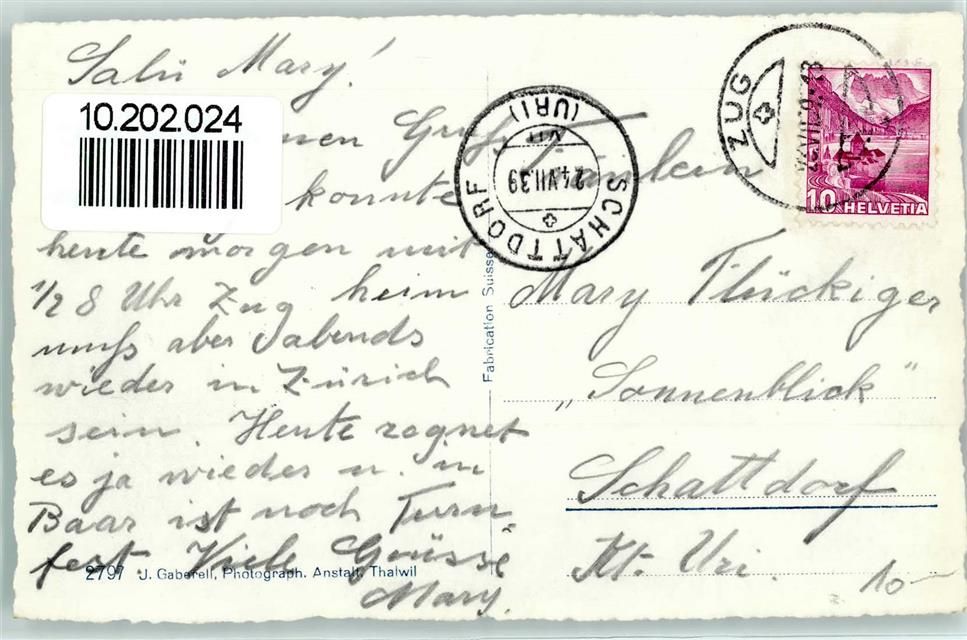 Salü Mary!
10.202.024
nen Gruss
konnte
heute morgen mit
1/2 8 Uhr Zug heim
muss aber Sabends
wieder in Zürich
sein. Heute regnet
es ja wieder u. in
Baar ist noch Turn
fest Viele Grüsse
Mary.
2797 J. Gaberell, Photograph. Anstalt, Thalwil
Fabrication Suisse
SCHATTDORF
(URI)
24.VII.39
ZUG
10 HELVETIA
Fräulein
Mary Flückiger
„Sonnenblick"
Schattdorf
Kt. Uri.
10-